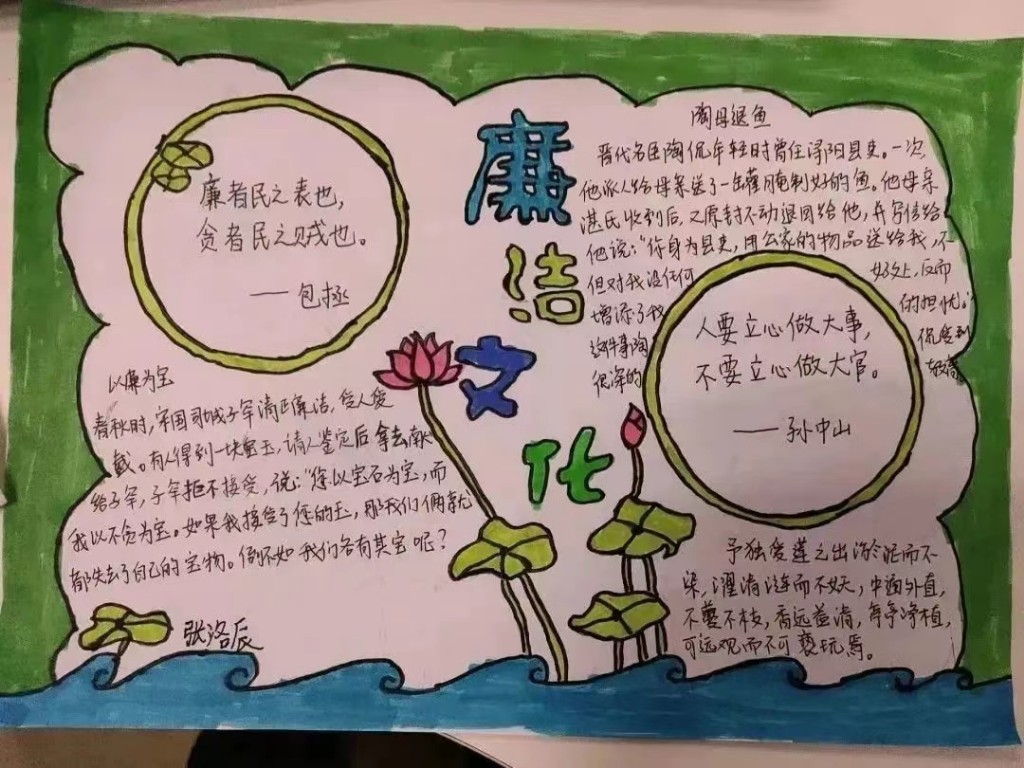 廉洁文化
廉者民之表也，
贪者民之贼也。
——包拯
以廉为宝
春秋时，宋国司城子罕清正廉洁，受人爱
戴。有人得到一块宝玉，请人鉴定后拿去献
给子罕，子罕拒不接受，说："您以宝石为宝，而
我以不贪为宝。如果我接受了您的玉，那我们俩就
都失去了自己的宝物。倒不如我们各有其宝呢？
张洛辰
陶母退鱼
晋代名臣陶侃年轻时曾任浔阳县吏。一次，
他派人给母亲送了一罐腌制好的鱼。他母亲
湛氏收到后，又原封不动退回给他，并写信给
他说："你身为县吏，用公家的物品送给我，不
但对我没任何 好处，反而
增添了我 的担忧。"
这件事陶 侃受到
很深的
人要立心做大事，
不要立心做大官。
——孙中山
予独爱莲之出淤泥而不
染，濯清涟而不妖，中通外直，
不蔓不枝，香远益清，亭亭净植，
可远观而不可亵玩焉。